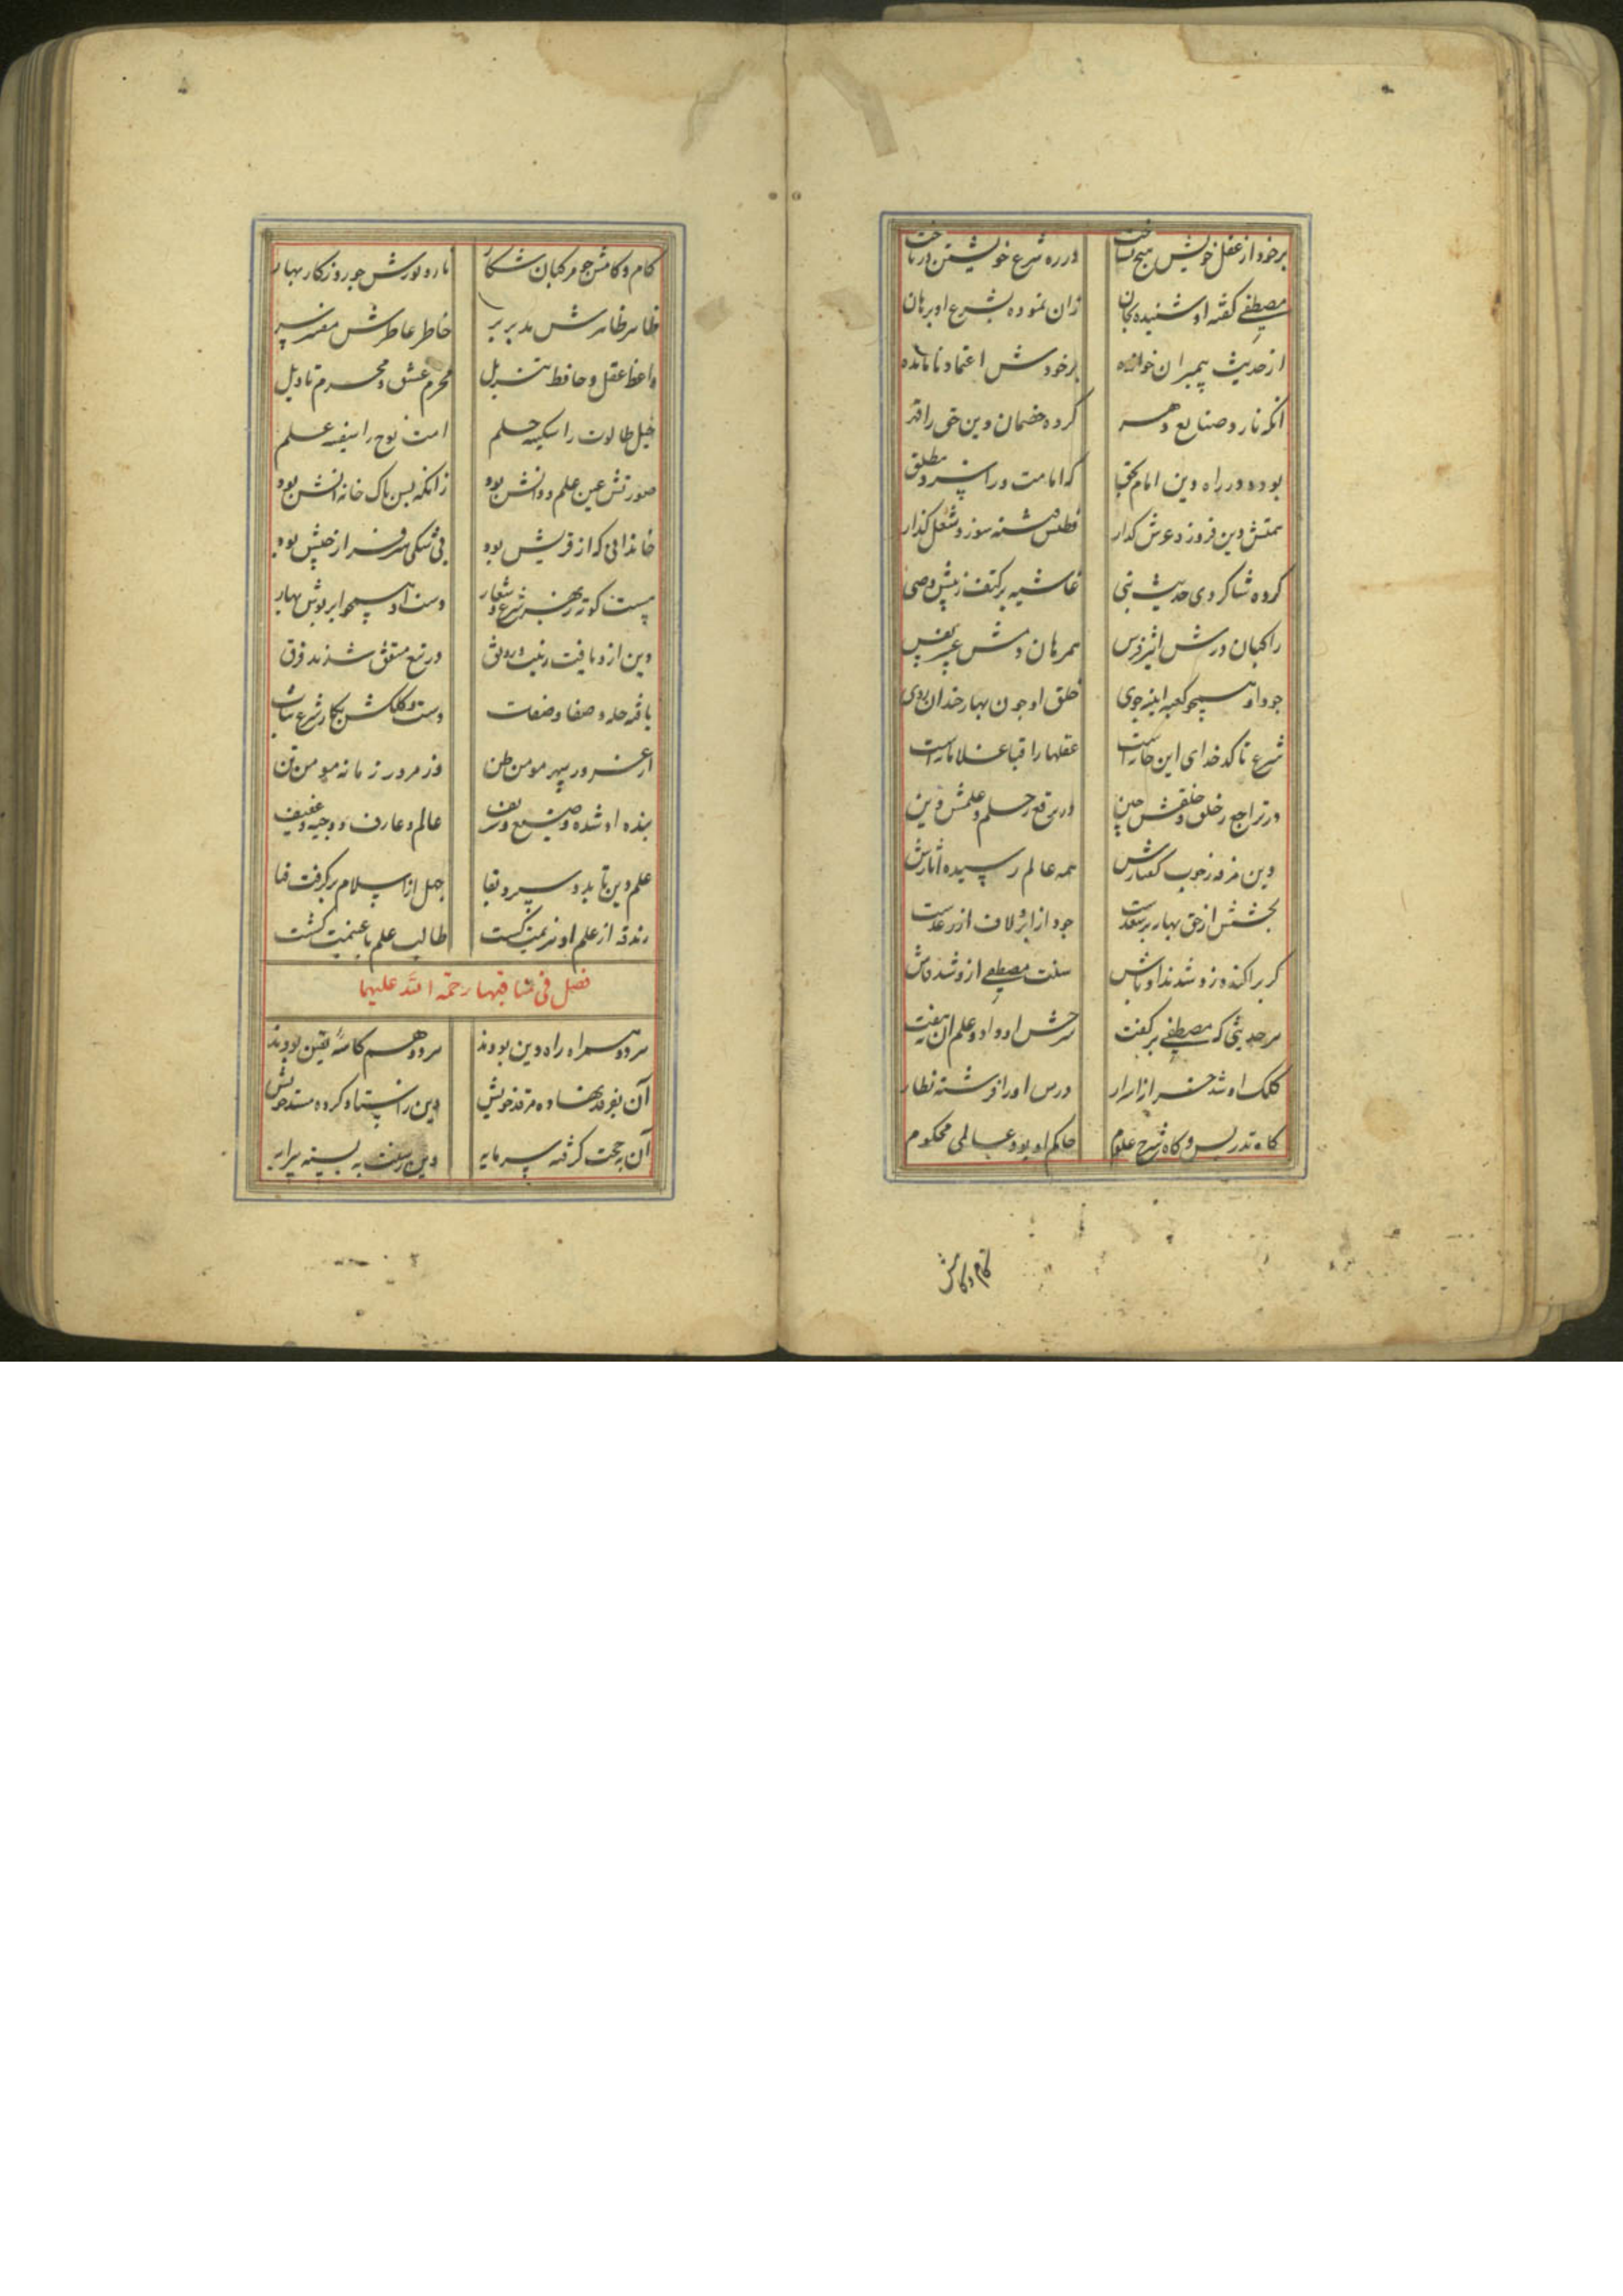 برخود از عقل خویش هیچ نساخت در ره شرع خویشتن درباخت
مصطفی گفته او شنیده بجان زان نموده بشرع او برهان
از حدیث پیمبران خوانده برخودش اعتماد نامانده
انکه نارد صنایع دهر کرده خصمان دین حق را قهر
بوده در راه دین امام بحق که امامت ورا سزد مطلق
همتش دین فروز و عرش کذار فطنتش فتنه سوز و شغل کذار
کرده شاکردی حدیث نبی غاشیه بر کتف ز پیش وصی
راکبان درش اثیر فرس همرهان دمش عبیر نفس
جود او همچو کعبه اینه جوی خلق او چون بهار خندان روی
شرع تا کدخدای این خاراست عقلها را قبا غلاماراست
در تراجع ز خلق و خلقش چین در ترفع ز حلم و علمش دین
دین مرفه ز خوب کفتارش همه عالم رسیده اثارش
بخشش از حق بهار بر سعدست جود از ابر و لاف از رعدست
کر پراکنده زو شدند اوباش سنت مصطفی ازو شد فاش
هر حدیثی که مصطفی بر کفت شرحش او داد و علم ان بنهفت
کلک او شد خبر از اسرار درس او را فرشته نظار
کاه تدریس و کاه شرح علوم حاکم او بود و عالمی محکوم
کام و کامش
کام و کامش چو مرکبان شکار نارد نورش چو روزکار بهار
ظاهر ظاهرش مدبر بر خاطر عاطرش مفسر سر
واعظ عقل و حافظ تنزیل محرم عشق و محرم تاویل
خیل طالوت را سکینه حلم امت نوح را سفینه علم
صورتش عین علم و دانش بود زانکه بس پاک خانه دانش بود
خاندانی که از قریش بود بی شکی سرفراز جیش بود
پست کوته ز بهر شرع و شعار دست او همچو ابر نوش بهار
دین ازو یافت زینت و رونق در تبع متفق شدند فرق
یافه حله و صفا و صفات دست و کلکش بکار شرع نبات
از غرور سپهر مومن ظن وز مرور زمانه مومن تن
بنده او شده وضیع و شریف عالم و عارف و وجیه و عفیف
علم دین تا بدو سپرد بقا جهل از اسلام برکرفت فنا
زندقه از علم او هزیمت کشت طالب علم با غنیمت کشت
فصل فی مناقبهما رحمة الله علیهما
هر دو همراه راه دین بودند هر دو هم کاسه یقین بودند
آن بفرقد نهاده مرقد خویش دین را بستاد کرده مسند خویش
آن بحجت کرفته سرمایه وین ز سنت به بسته پیرایه